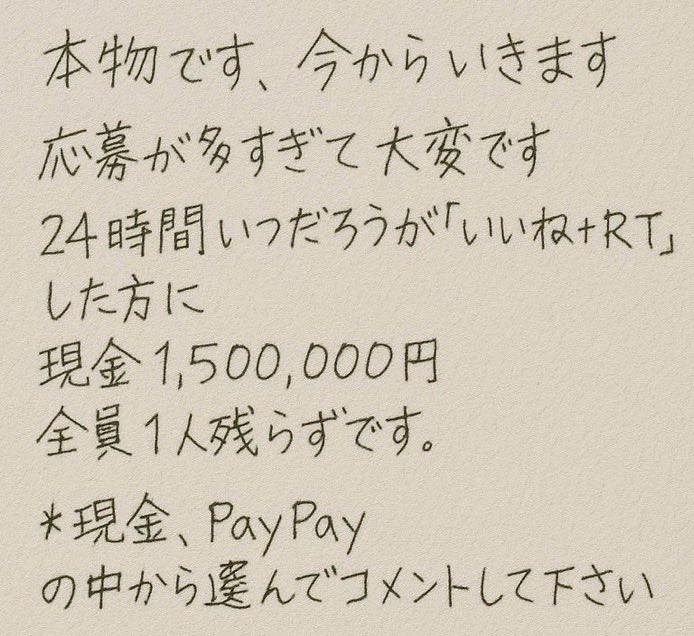 本物です、今からいきます
応募が多すぎて大変です
24時間いつだろうが「いいね+RT」
した方に
現金1,500,000円
全員1人残らずです。
*現金、PayPay
の中から選んでコメントして下さい